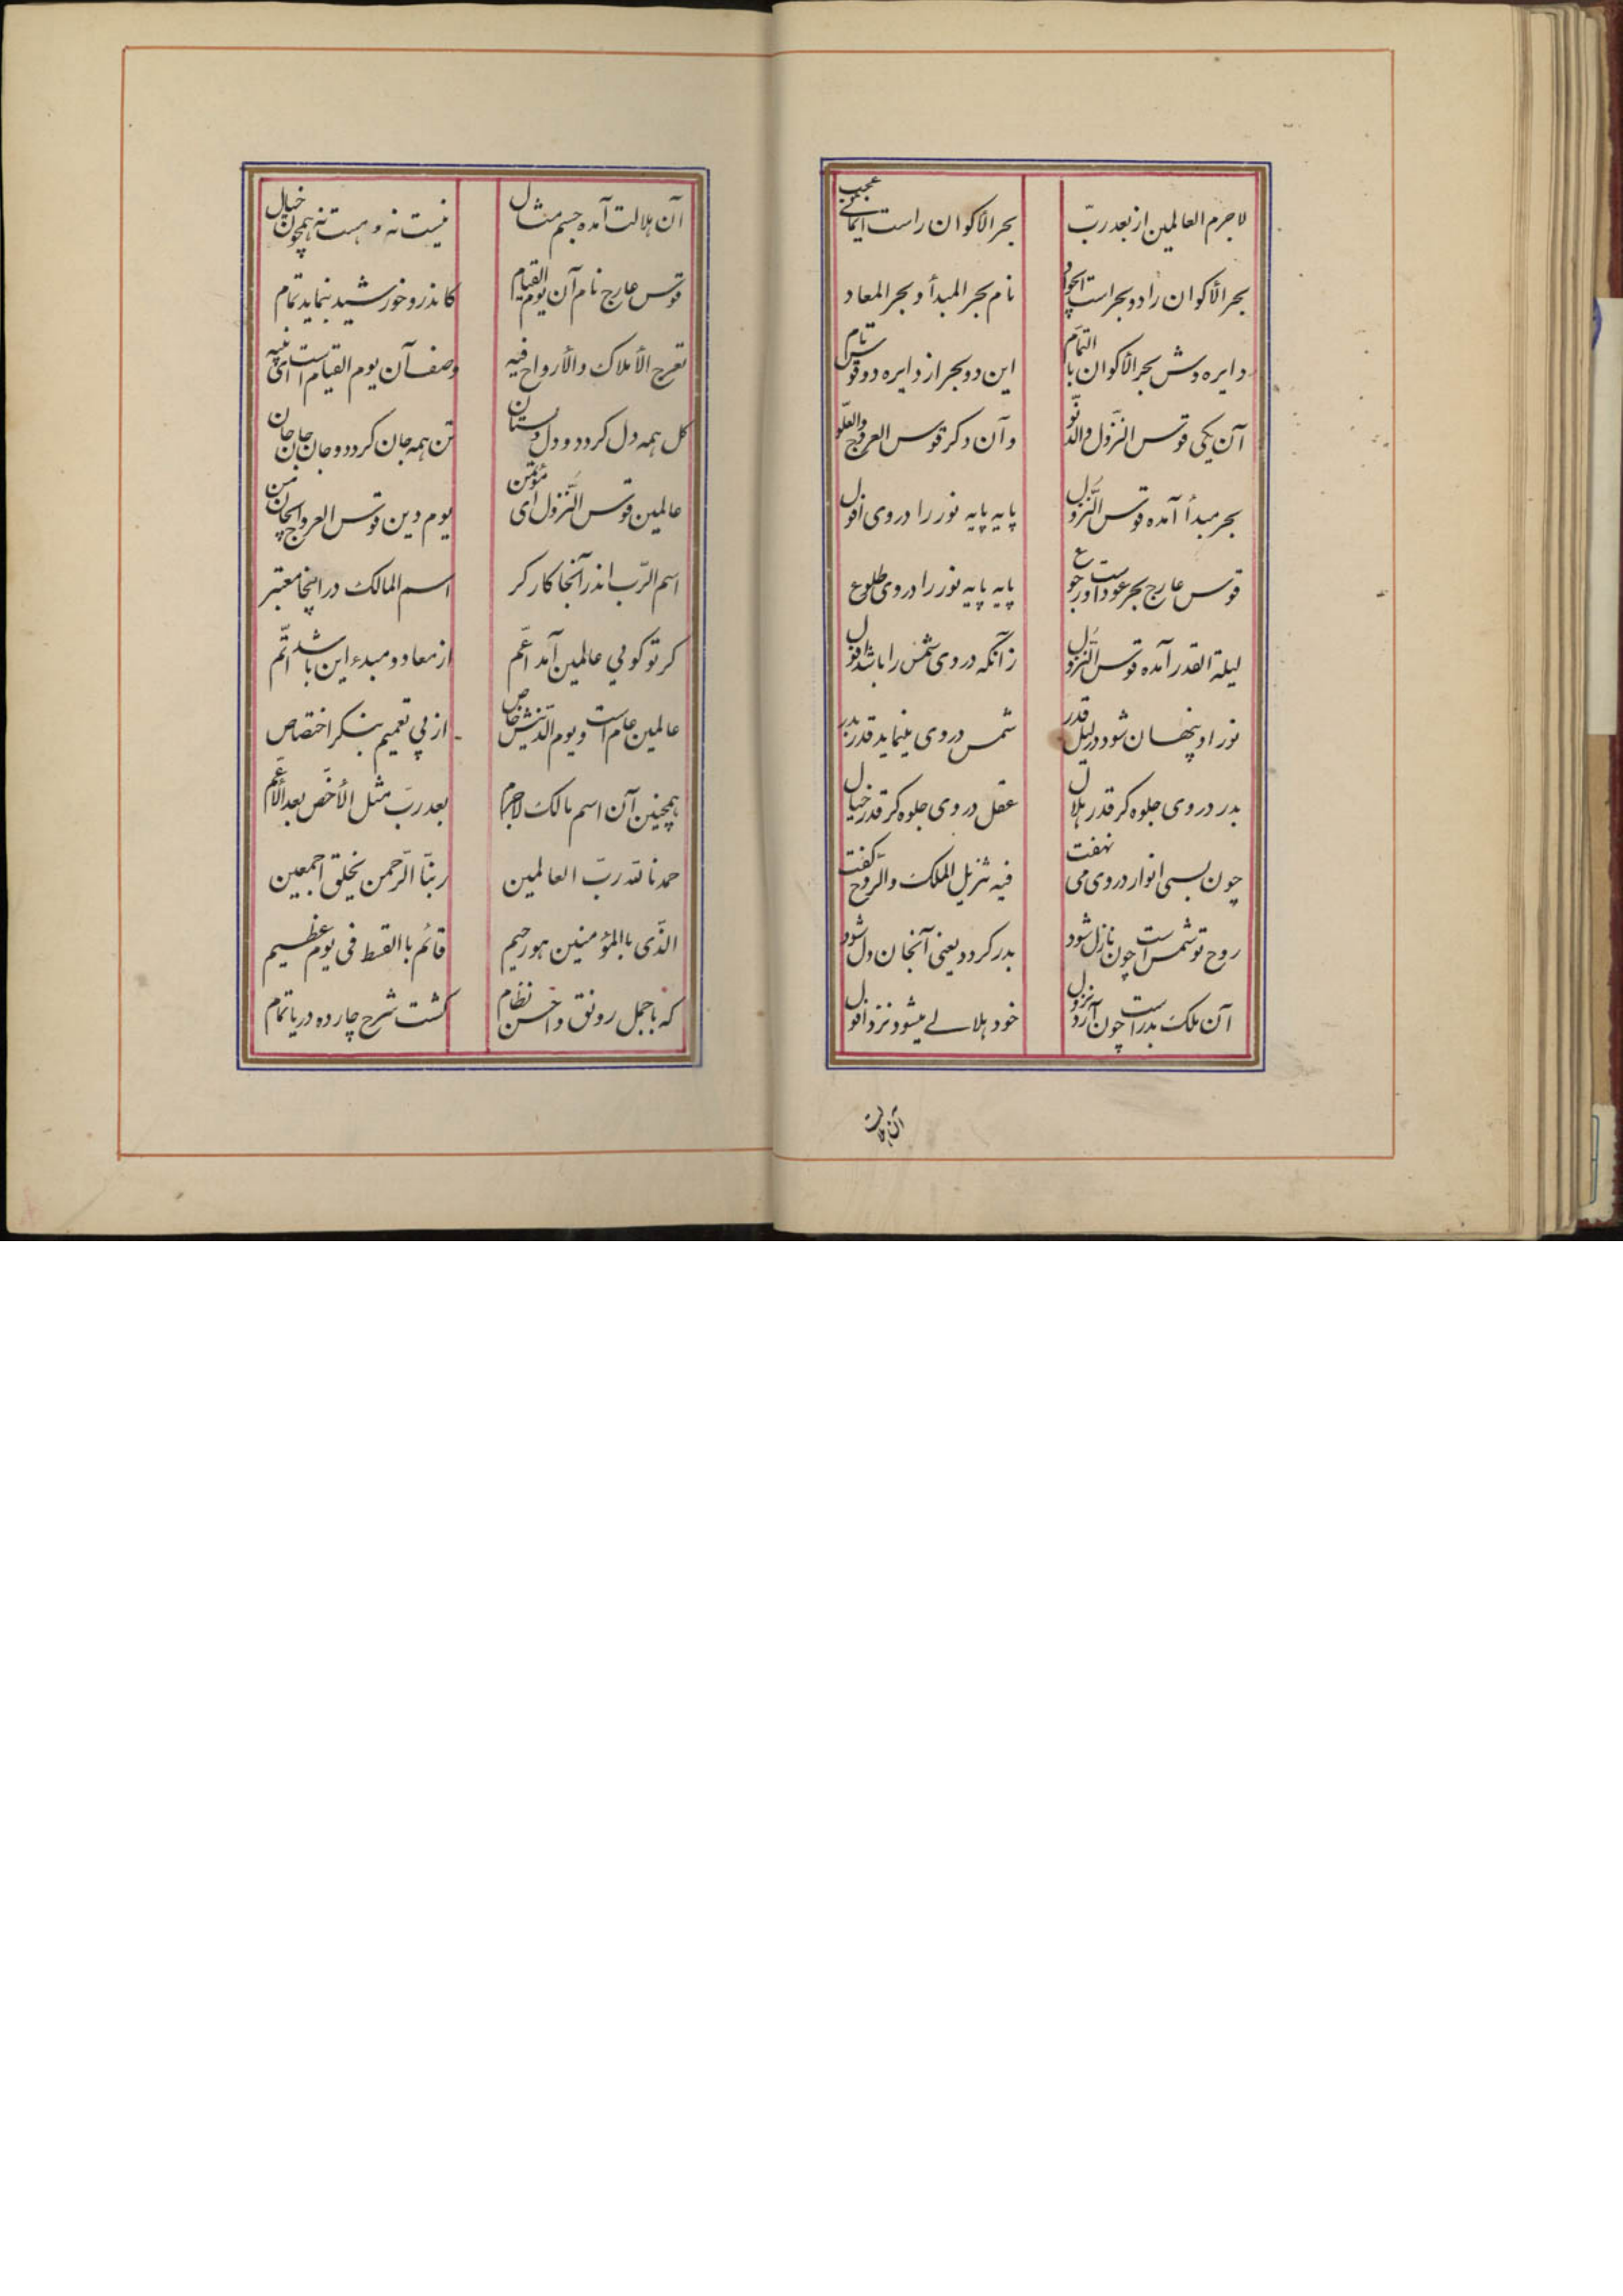 لاجرم العالمین از بعد ربّ بحر الاکوان راست ایمائی عجب
بحر الأکوان را دو بحر است ای جواد نام بحر المبدأ و بحر المعاد
دایره وش بحر الأکوان بالتمام این دو بحر از دایره دو قوس تام
آن یکی قوس النزول والدنوّ وآن دگر قوس العروج والعلوّ
بحر مبدأ آمده قوس النّزول پایه پایه نور را در وی افول
قوس عارج بحر عود است و رجوع پایه پایه نور را در وی طلوع
لیلة القدر آمده قوس النّزول زآنکه در وی شمس را باشد افول
نور او پنهان شود در لیل قدر شمس در وی مینماید قدر بدر
بدر در وی جلوه کر قدر هلال عقل در وی جلوه کر قدر خیال
چون بسی انوار در وی می نهفت فیه تنزیل الملک والرّوح کفت
روح تو شمس است چون نازل شود بدر کردد یعنی آنجا آن دل شود
آن ملک بدر است چون آرد نزول خود هلالے میشود نزد افول
آن هلالت
آن هلالت آمده جسم مثال نیست نه و هست نه همچون خیال
قوس عارج نام آن یوم القیام کاندرو خورشید بنماید تمام
تعرج الأملاک والأرواح فیه وصف آن یوم القیام است ای نبیه
کل همه دل کردد و دل دلستان تن همه جان کردد و جان جان جان
عالمین قوس النّزول ای مؤتمن یوم دین قوس العروج ای جان من
اسم الرّب اندر آنجا کارکر اسم المالک در اینجا معتبر
کر تو کویی عالمین آمد اعّم از معاد و مبدء این باشد اتّم
عالمین عام است و یوم الدّینش خاص از پی تعمیم بنکر اختصاص
همچنین آن اسم مالک لاجرم بعد ربّ مثل الأخصّ بعد الأعّم
حمدنا لله ربّ العالمین ربنّا الرّحمن بخلق اجمعین
الذّی باالمؤمنین هو رحیم قائم باالقسط فی یوم عظیم
که باجمل رونق و احسن نظام کشت شرح چارده دریا تمام